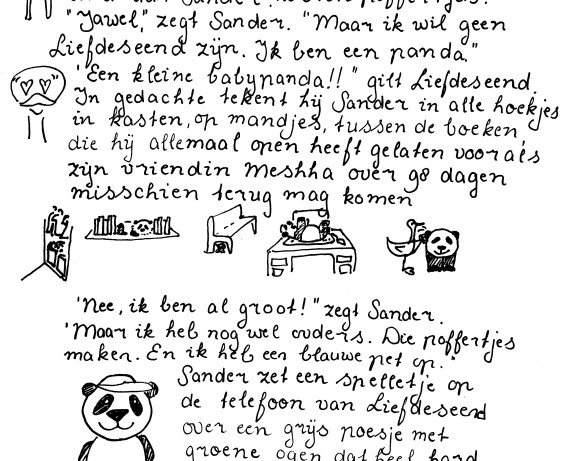 Sander
"Jawel," zegt Sander. "Maar ik wil geen
Liefdeseend zijn. Ik ben een panda."
'Een kleine babypanda!!" gilt Liefdeseend.
In gedachte tekent hij Sander in alle hoekjes
in kasten, op mandjes, tussen de boeken
die hij allemaal open heeft gelaten voor als
zijn vriendin Meshha over 98 dagen
misschien terug mag komen
'Nee, ik ben al groot!" zegt Sander.
'Maar ik heb nog wel ouders. Die poffertjes
maken. En ik heb een blauwe pet op."
Sander zet een spelletje op
de telefoon van Liefdeseend
over een grijs poesje met
groene ogen dat heel hard